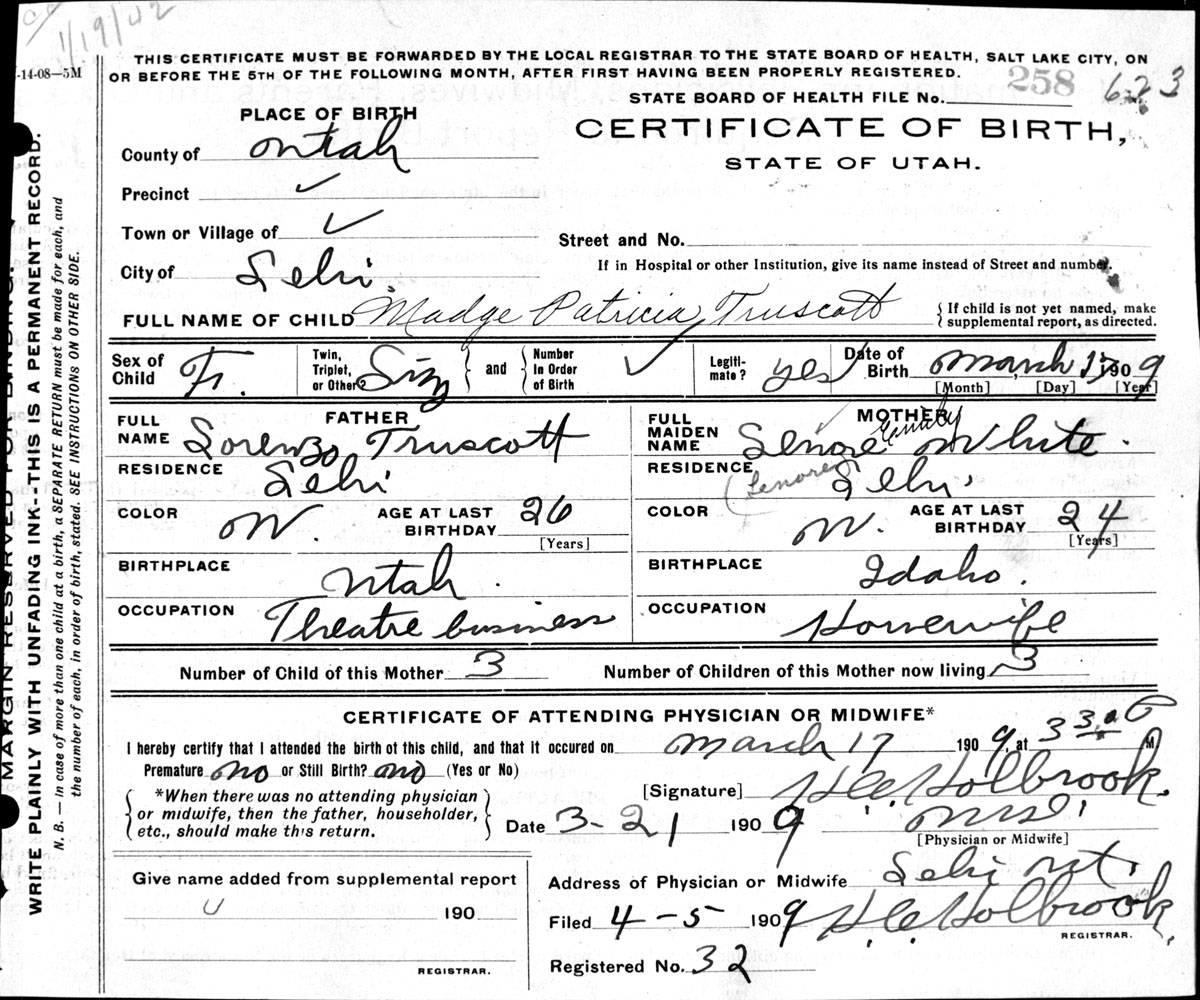 1/19/42
-14-08—5M
THIS CERTIFICATE MUST BE FORWARDED BY THE LOCAL REGISTRAR TO THE STATE BOARD OF HEALTH, SALT LAKE CITY, ON
OR BEFORE THE 5TH OF THE FOLLOWING MONTH, AFTER FIRST HAVING BEEN PROPERLY REGISTERED.
STATE BOARD OF HEALTH FILE No. 258 623
PLACE OF BIRTH
CERTIFICATE OF BIRTH,
STATE OF UTAH.
County of Utah
Precinct ✓
Town or Village of ✓
Street and No.
City of Lehi.
If in Hospital or other Institution, give its name instead of Street and number.
FULL NAME OF CHILD Madge Patricia Truscott { If child is not yet named, make supplemental report, as directed.
Sex of Child F. Twin, Triplet, or Other Sing } and { Number In Order of Birth ✓ Legiti-mate? yes Date of Birth March 17 1909
[Month] [Day] [Year]
FATHER
FULL NAME Lorenzo Truscott
RESIDENCE Lehi
COLOR W. AGE AT LAST BIRTHDAY 26
[Years]
BIRTHPLACE Utah.
OCCUPATION Theatre business
MOTHER
FULL MAIDEN NAME Lenore Emily White.
RESIDENCE (Lenore) Lehi.
COLOR W. AGE AT LAST BIRTHDAY 24
[Years]
BIRTHPLACE Idaho.
OCCUPATION Housewife
Number of Child of this Mother 3 Number of Children of this Mother now living 3
CERTIFICATE OF ATTENDING PHYSICIAN OR MIDWIFE*
I hereby certify that I attended the birth of this child, and that it occured on March 17 1909, at 3 30 P M
Premature no or Still Birth? no (Yes or No)
[Signature] H.C. Holbrook.
{ *When there was no attending physician
or midwife, then the father, householder,
etc., should make this return. }
Date 3-21 1909 M.D.
[Physician or Midwife]
Give name added from supplemental report
190
REGISTRAR.
Address of Physician or Midwife Lehi Ut.
Filed 4-5 1909 H.C. Holbrook,
REGISTRAR.
Registered No. 32
MARGIN RESERVED FOR BINDING.
WRITE PLAINLY WITH UNFADING INK--THIS IS A PERMANENT RECORD.
N. B. — In case of more than one child at a birth, a SEPARATE RETURN must be made for each, and
the number of each, in order of birth, stated. SEE INSTRUCTIONS ON OTHER SIDE.